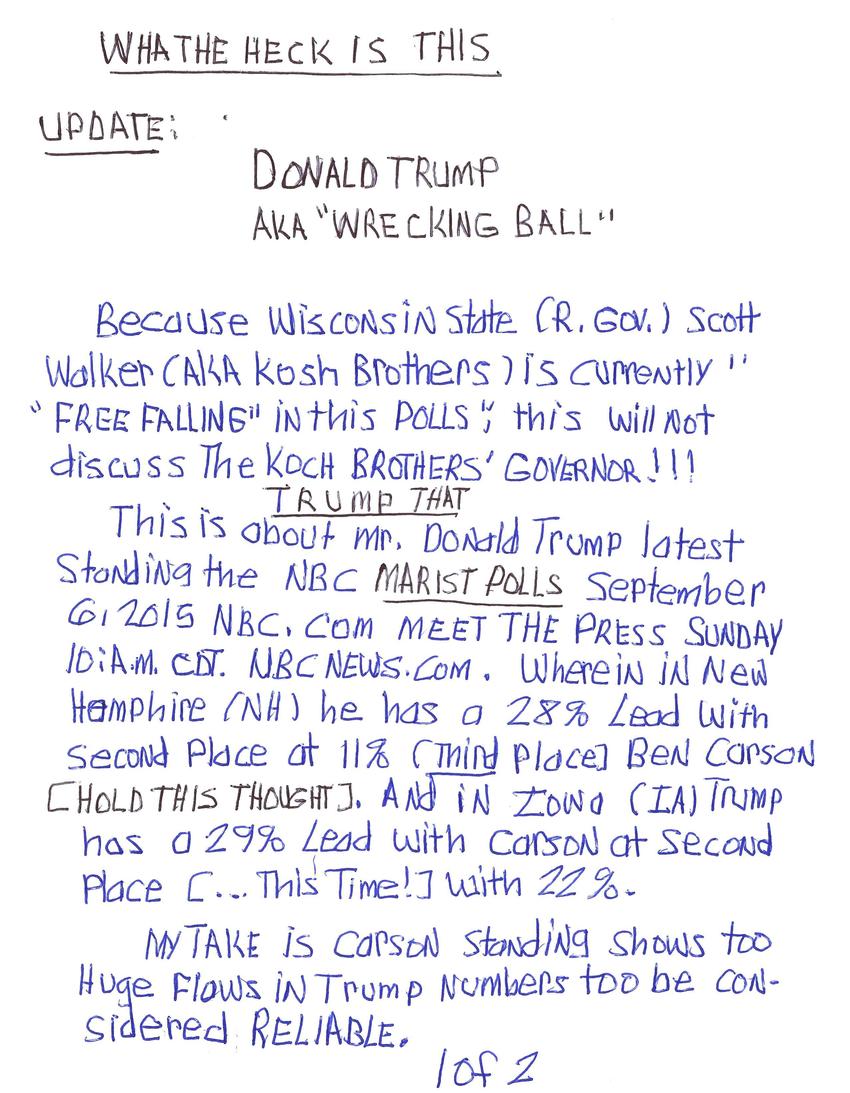 WHATHE HECK IS THIS
UPDATE:
DONALD TRUMP
AKA "WRECKING BALL"
Because Wisconsin State (R. Gov.) Scott
Walker (AKA Kosh Brothers) is currently "
"FREE FALLING" in this POLLS"; this will Not
discuss The KOCH BROTHERS' GOVERNOR!!!
TRUMP THAT
This is about Mr. Donald Trump latest
Standing the NBC MARIST POLLS September
6, 2015 NBC.COM MEET THE PRESS SUNDAY
10:A.M. CDT. NBCNEWS.COM. Wherein in New
Hamphire (NH) he has a 28% Lead with
second Place at 11% (Third place] BEN CARSON
[HOLD THIS THOUGHT]. And in Iowa (IA) Trump
has a 29% Lead with Carson at second
Place [... This Time!] with 22%.
MY TAKE is Carson Standing shows too
Huge Flaws in Trump Numbers too be con-
sidered RELIABLE.
1 of 2